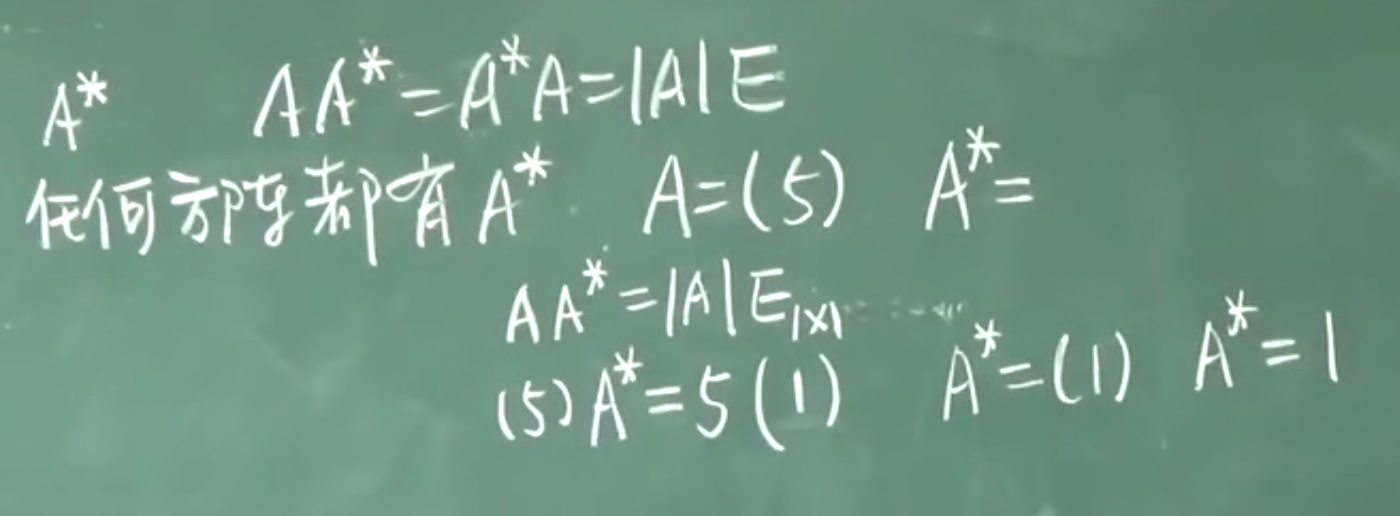 A* AA*=A*A=|A|E
任何方阵都有A* A=(5) A*=
AA*=|A|E₁ₓ₁
(5)A*=5(1) A*=(1) A*=1